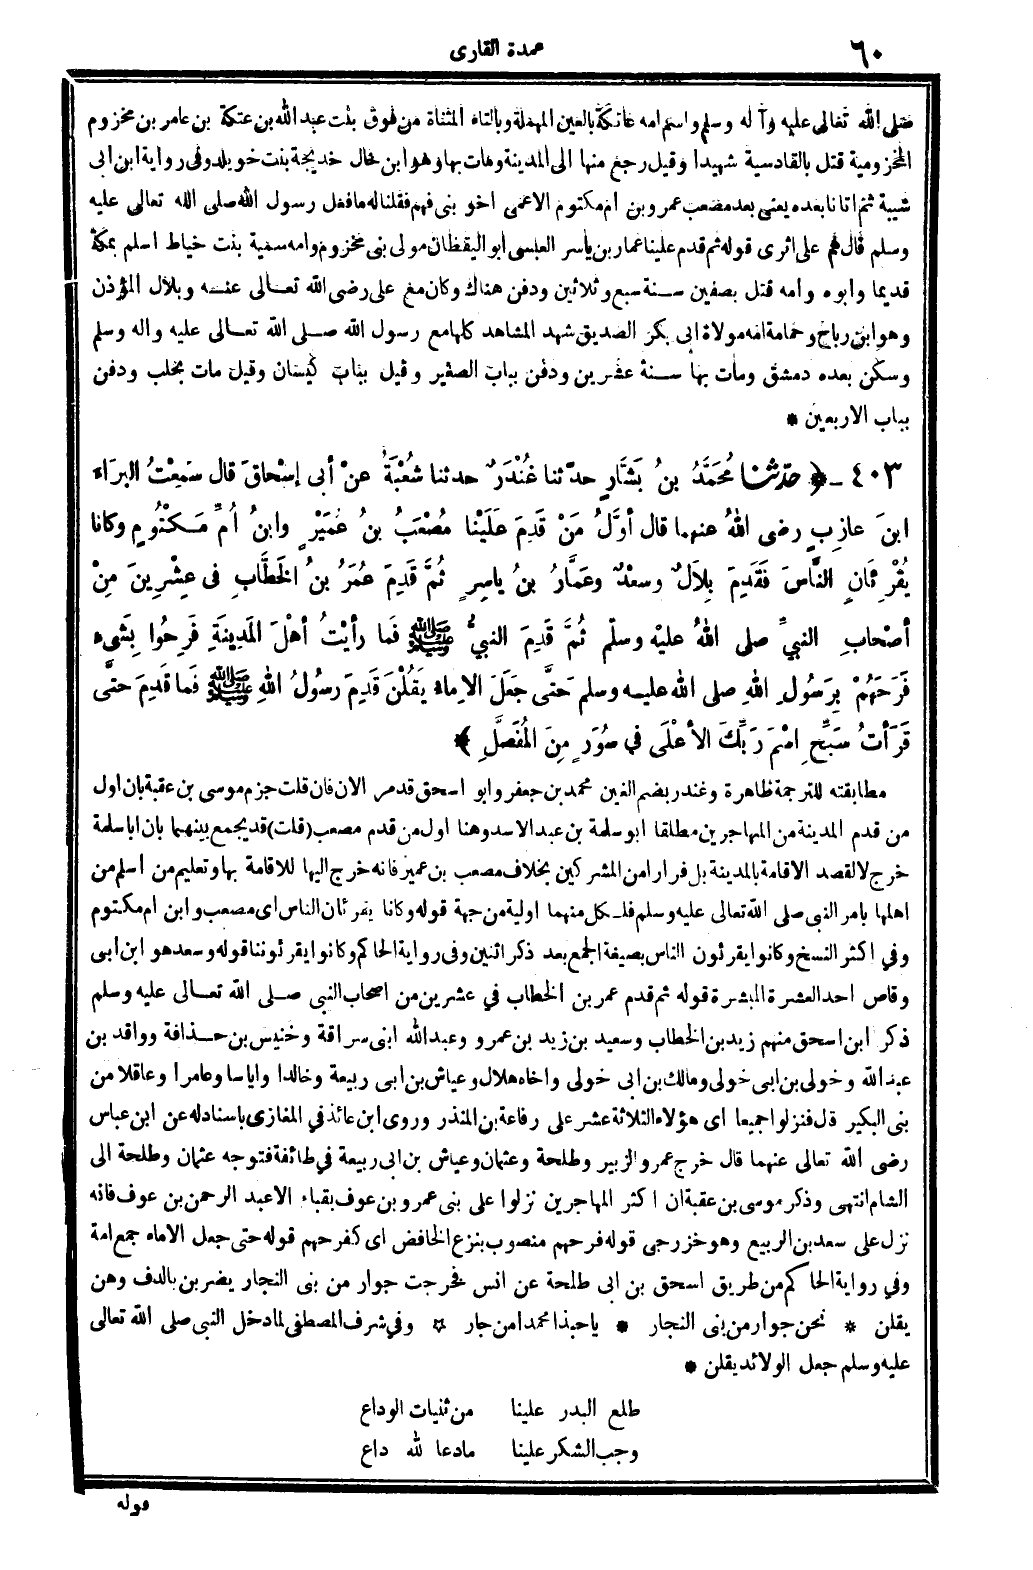 عمدة القارى ٦٠
صلى الله تعالى عليه وآله وسلم واسم امه عاتكة بالعين المهملة وبالتاء المثناة من فوق بنت عبد الله بن عتكة بن عامر بن مخزوم
المخزومية قتل بالقادسية شهيدا وقيل رجع منها الى المدينة ومات بها وهو ابن خال خديجة بنت خويلد وفى رواية ابن ابى
شيبة ثم اتانا بعده يعنى بعد مصعب عمرو بن ام مكتوم الاعمى اخو بنى فهم فقلنا له ما فعل رسول الله صلى الله تعالى عليه
وسلم قال هم على اثرى قوله ثم قدم علينا عمار بن ياسر العبسى ابو اليقظان مولى بنى مخزوم وامه سمية بنت خياط اسلم بمكة
قديما وابوه وامه قتل بصفين سنة سبع وثلاثين ودفن هناك وكان مع على رضى الله تعالى عنه وبلال المؤذن
وهو ابن رباح وحمامة امه مولاة ابى بكر الصديق شهد المشاهد كلها مع رسول الله صلى الله تعالى عليه واله وسلم
وسكن بعده دمشق ومات بها سنة عشرين ودفن بباب الصغير وقيل بباب كيسان وقيل مات بحلب ودفن
بباب الاربعين *
٤٠٣ - ﴿ حدّثنا مُحَمَّدُ بنُ بَشَّارٍ حدّثنا غُنْدَرٌ حدثنا شُعْبَةُ عنْ أبى إسْحاقَ قال سَمِعْتُ البرَاء
ابنَ عازِبٍ رضى اللهُ عنهما قال أوَّلُ مَنْ قَدِمَ عَلَيْنا مُصْعَبُ بنُ عُمَيْرٍ وابنُ أُمِّ مَكْتُومٍ وكانا
يُقْرِئَانِ النَّاسَ فَقَدِمَ بِلاَلٌ وسعْدٌ وعَمَّارُ بنُ ياسِرٍ ثُمَّ قَدِمَ عُمَرُ بنُ الخَطَّابِ فى عِشْرِينَ مِنْ
أصْحابِ النبيِّ صلى اللهُ عليْه وسلّم ثُمَّ قَدِمَ النبيُّ ﷺ فَما رأيْتُ أهْلَ المَدِينَةِ فَرِحُوا بِشَيْء
فَرَحَهُمْ بِرَسُولِ اللهِ صلى الله عليه وسلم حَتَّى جَعَلَ الاِماءُ يَقُلْنَ قَدِمَ رسُولُ اللهِ ﷺ فَما قَدِمَ حتى
قَرَأتُ سَبِّحِ اسْمَ رَبِّكَ الأعْلَى فى سُوَرٍ مِنَ المُفَصَّلِ ﴾
مطابقته للترجمة ظاهرة وغندر بضم الغين محمد بن جعفر وابو اسحق قد مر الان فان قلت جزم موسى بن عقبة بان اول
من قدم المدينة من المهاجرين مطلقا ابو سلمة بن عبد الاسد وهنا اول من قدم مصعب (قلت) قد يجمع بينهما بان ابا سلمة
خرج لا لقصد الاقامة بالمدينة بل فرارا من المشركين بخلاف مصعب بن عمير فانه خرج اليها للاقامة بها وتعليم من اسلم من
اهلها بامر النبى صلى الله تعالى عليه وسلم فلكل منهما اولية من جهة قوله وكانا يقرئان الناس اى مصعب وابن ام مكتوم
وفي اكثر النسخ وكانوا يقرئون الناس بصيغة الجمع بعد ذكر اثنين وفى رواية الحاكم وكانوا يقرئوننا قوله وسعد هو ابن ابى
وقاص احد العشرة المبشرة قوله ثم قدم عمر بن الخطاب في عشرين من اصحاب النبي صلى الله تعالى عليه وسلم
ذكر ابن اسحق منهم زيد بن الخطاب وسعيد بن زيد بن عمرو وعبد الله ابنى سراقة وخنيس بن حذافة وواقد بن
عبد الله وخولى بن ابى خولى ومالك بن ابى خولى واخاه هلال وعياش بن ابى ربيعة وخالدا واياسا وعامرا وعاقلا من
بنى البكير قال فنزلوا جميعا اى هؤلاء الثلاثة عشر على رفاعة بن المنذر وروى ابن عائذ في المغازى باسناد له عن ابن عباس
رضى الله تعالى عنهما قال خرج عمر والزبير وطلحة وعثمان وعياش بن ابى ربيعة في طائفة فتوجه عثمان وطلحة الى
الشام انتهى وذكر موسى بن عقبة ان اكثر المهاجرين نزلوا على بنى عمرو بن عوف بقباء الا عبد الرحمن بن عوف فانه
نزل على سعد بن الربيع وهو خزرجى قوله فرحهم منصوب بنزع الخافض اى كفرحهم قوله حتى جعل الاماء جمع امة
وفي رواية الحاكم من طريق اسحق بن ابى طلحة عن انس فخرجت جوار من بنى النجار يضربن بالدف وهن
يقلن * نحن جوار من بنى النجار * يا حبذا محمدا من جار * وفي شرف المصطفى لما دخل النبي صلى الله تعالى
عليه وسلم جعل الولائد يقلن *
طلع البدر علينا من ثنيات الوداع
وجب الشكر علينا ما دعا لله داع
قوله